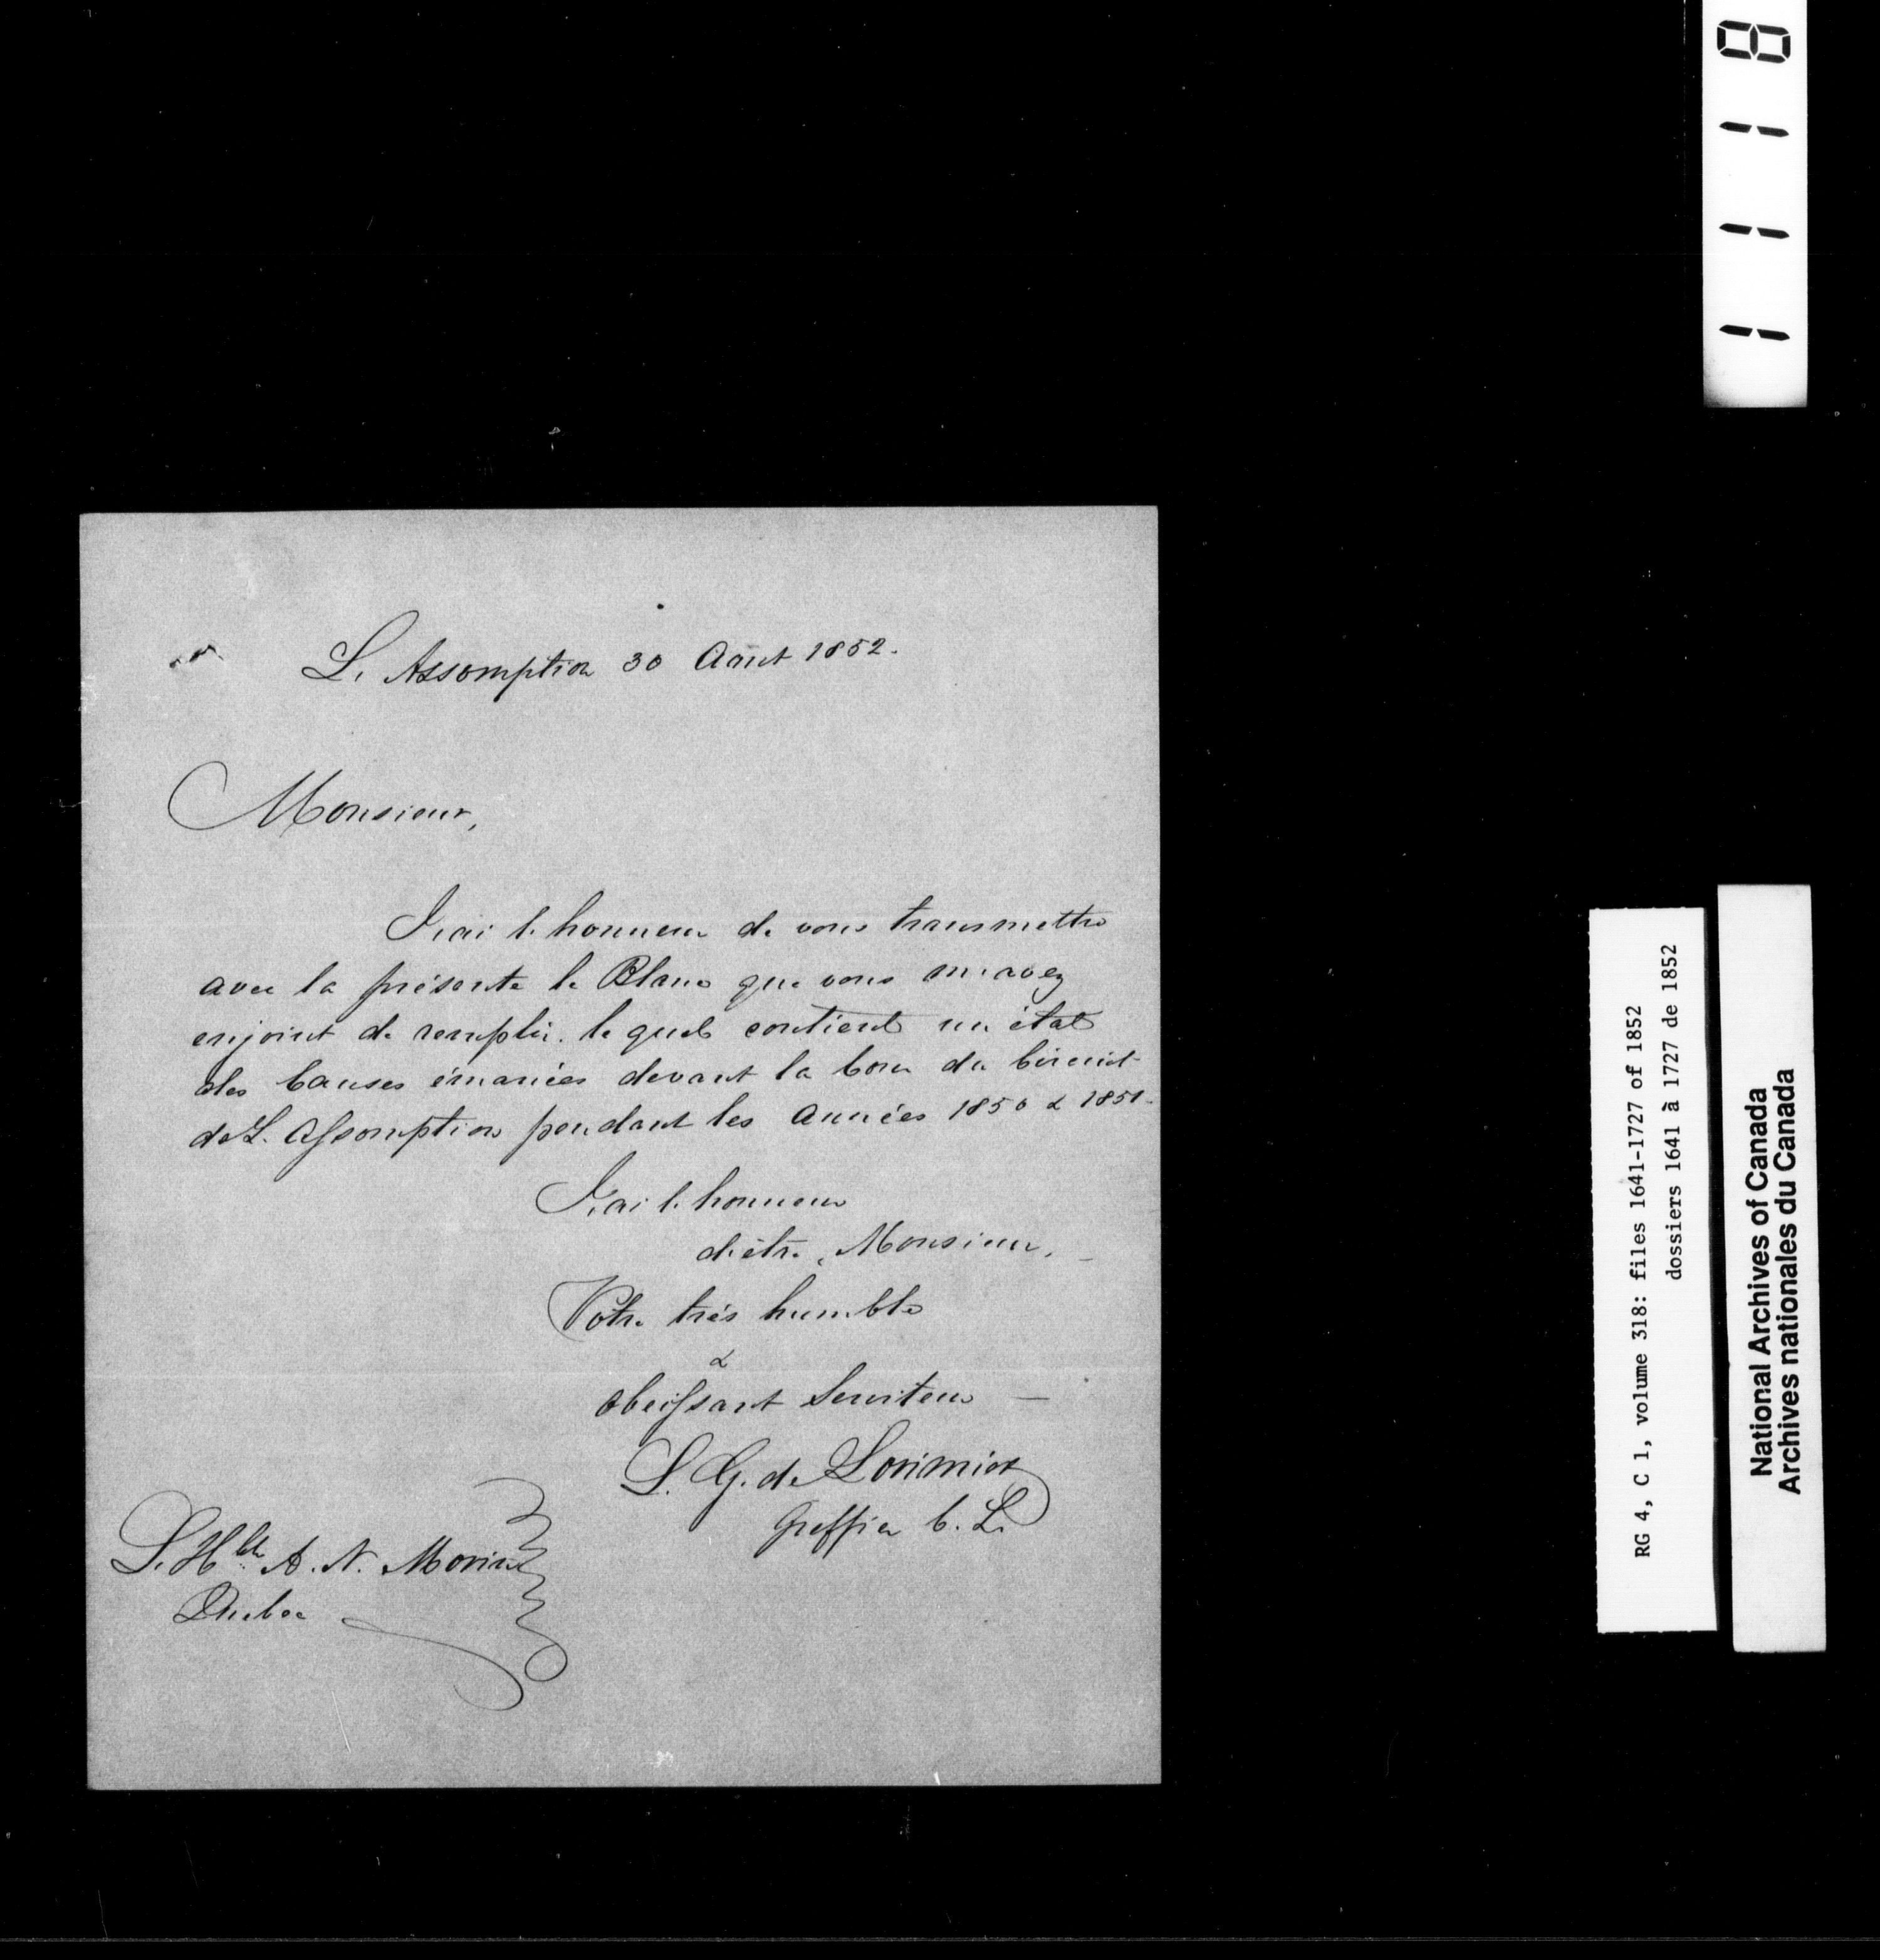 L'Assomption 30 Août 1852.
Monsieur,
J'ai l'honneur de vous transmettre
avec la présente le Blanc que vous m'avez
enjoint de remplir. le quel contient un état
des Causes émanées devant la Cour du Circuit
de L'Assomption pendant les Années 1850 & 1851-
J'ai l'honneur
d'être, Monsieur,
Votre très humble
&
obeissant Serviteur —
L. G. de Lorimier
Greffier C. C.
L'Hble A. N. Morin
Quebec
8
1
1
1
RG 4, C 1, volume 318: files 1641-1727 of 1852
dossiers 1641 à 1727 de 1852
National Archives of Canada
Archives nationales du Canada